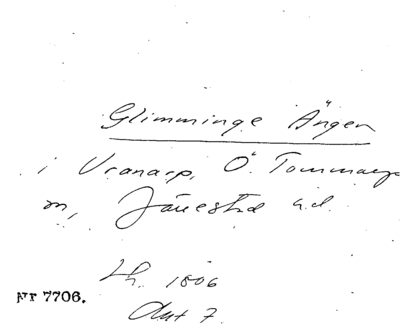 Glimminge Ängen
i Vranarp, Ö. Tommarp
m, Järrestad h.d.
Lh. 1806
Akt 7
Nr 7706.